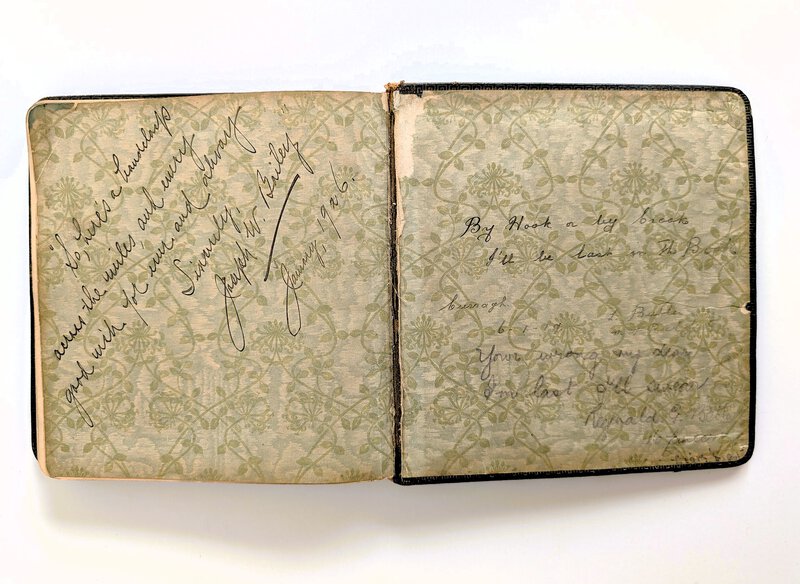 "So, here's a handclasp
across the miles, and every
good wish for ever and alway
Sincerely,
Joseph W. Bailey
January, 1926.
By Hook or by crook
I'll be last in This Book
Curragh
6-1-19
Your wrong my dear
I'm last I'll swear
Reginald